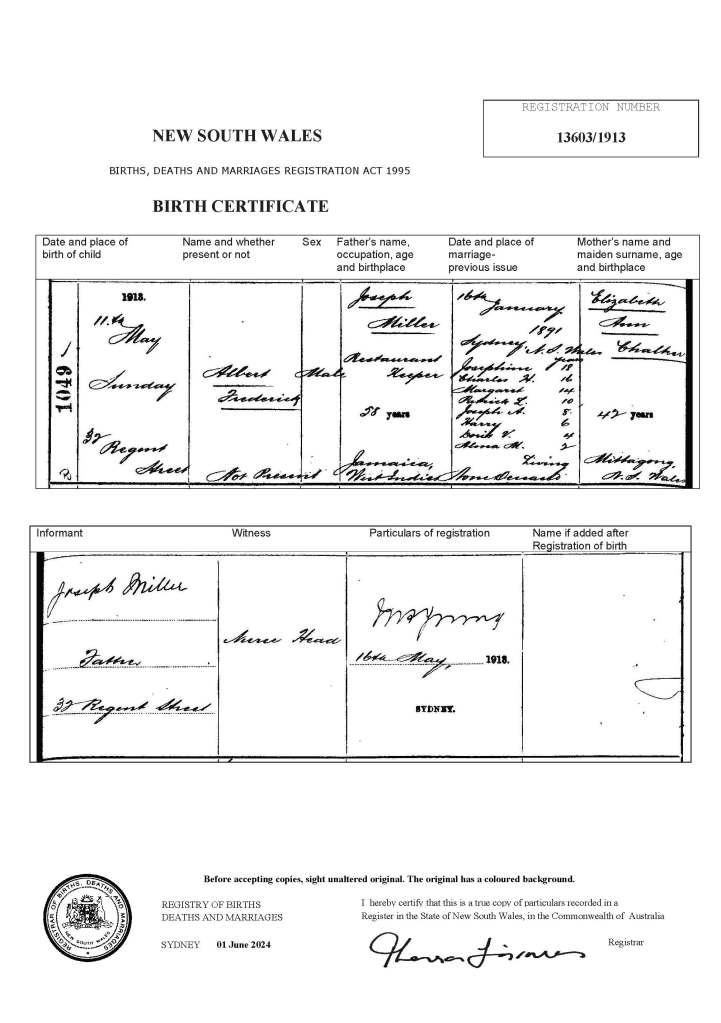 REGISTRATION NUMBER
13603/1913
NEW SOUTH WALES
BIRTHS, DEATHS AND MARRIAGES REGISTRATION ACT 1995
BIRTH CERTIFICATE
Date and place of
birth of child
Name and whether
present or not
Sex
Father's name,
occupation, age
and birthplace
Date and place of
marriage-
previous issue
Mother's name and
maiden surname, age
and birthplace
1049
1913.
11.th
May
Sunday
32
Regent
Street
Albert
Frederick
Not Present
Male
Joseph
Miller
Restaurant
Keeper
58 years
Jamaica,
West Indies
16th
January
1891
Sydney, N.S. Wales
years
Josephine 18
Charles H. 16
Margaret 14
Patrick L. 10
Joseph A. 8
Harry 6
Doris V. 4
Alma M. 2
Living
None Deceased
Elizabeth
Ann
Chalker
42 years
Mittagong,
N.S. Wales
Informant
Witness
Particulars of registration
Name if added after
Registration of birth
Joseph Miller
Father,
32 Regent Street
Nurse Head
16th May, 1913.
SYDNEY.
Before accepting copies, sight unaltered original. The original has a coloured background.
REGISTRAR OF BIRTHS, DEATHS AND MARRIAGES
NEW SOUTH WALES
REGISTRY OF BIRTHS
DEATHS AND MARRIAGES
SYDNEY 01 June 2024
I hereby certify that this is a true copy of particulars recorded in a
Register in the State of New South Wales, in the Commonwealth of Australia
Registrar